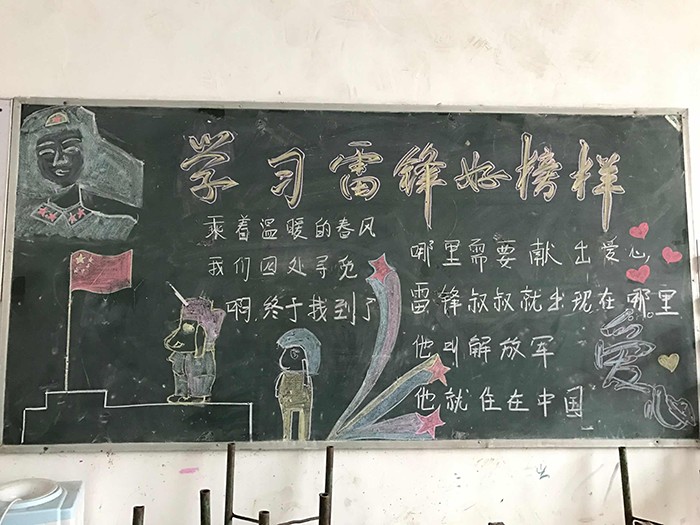 学习雷锋好榜样
乘着温暖的春风
我们四处寻觅
啊.终于找到了
哪里需要献出爱心
雷锋叔叔就出现在哪里
他叫解放军
他就住在中国
爱心